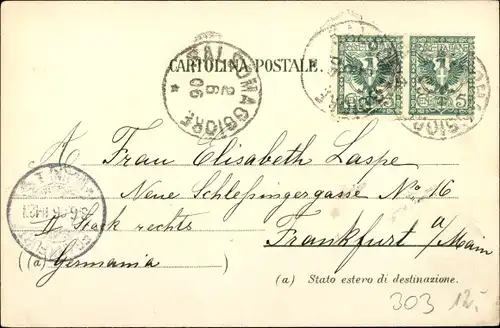 SALSOMAGGIORE
2 6 06
CARTOLINA POSTALE.
Frau Elisabeth Laspe
Neue Schlesingergasse No 16
II Stock rechts
Frankfurt a/Main
((a) Germania)
(a) Stato estero di destinazione.
303 12.-